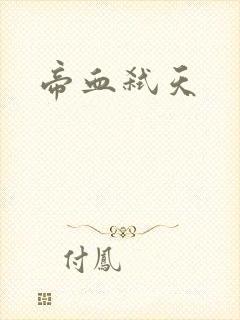 帝血弒天
付鳳